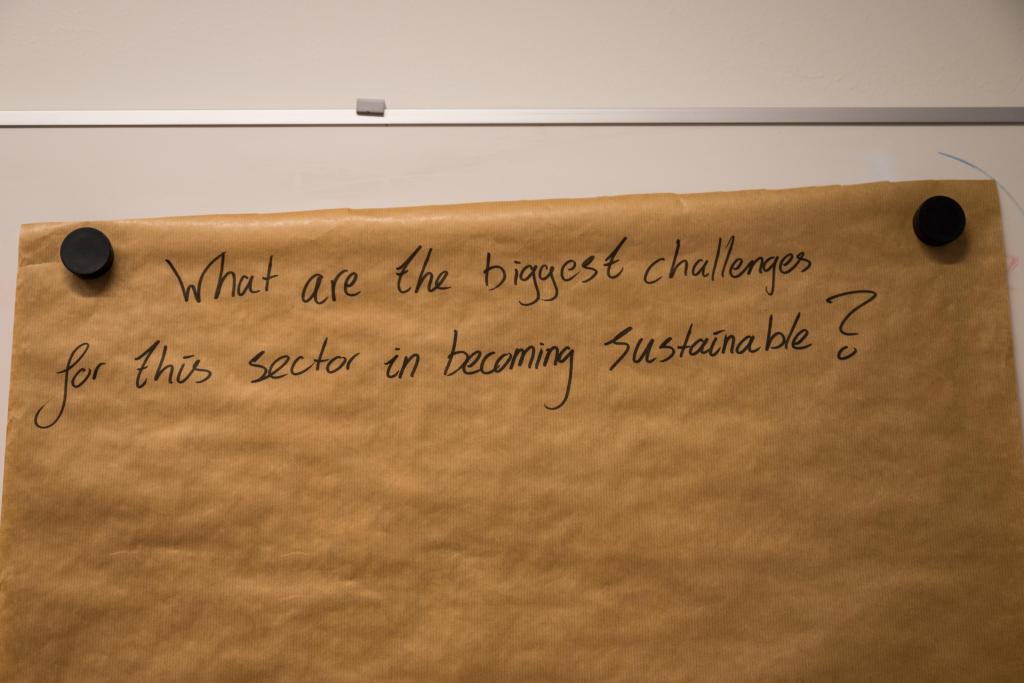 What are the biggest challenges
for this sector in becoming sustainable?